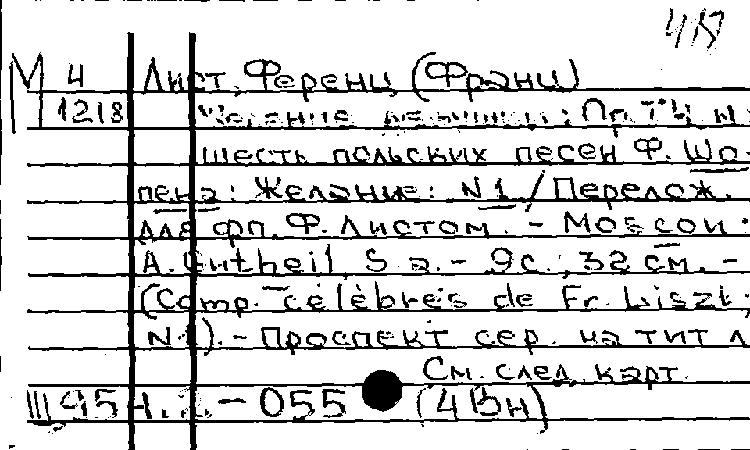 М 4 Лист, Ференц (Франц)
1218 Желание девушки: Пр. тч и:
шесть польских песен Ф. Шо-
пена: Желание: N1 / Перелож.
для фп. Ф. Листом. - Moscou:
A. Gutheil, S a. - 9 с.; 32 см. -
(Comp. célèbres de Fr. Liszt;
N1). - Проспект сер. на тит л
См. след. карт.
III 95 - 055 (4Вн)